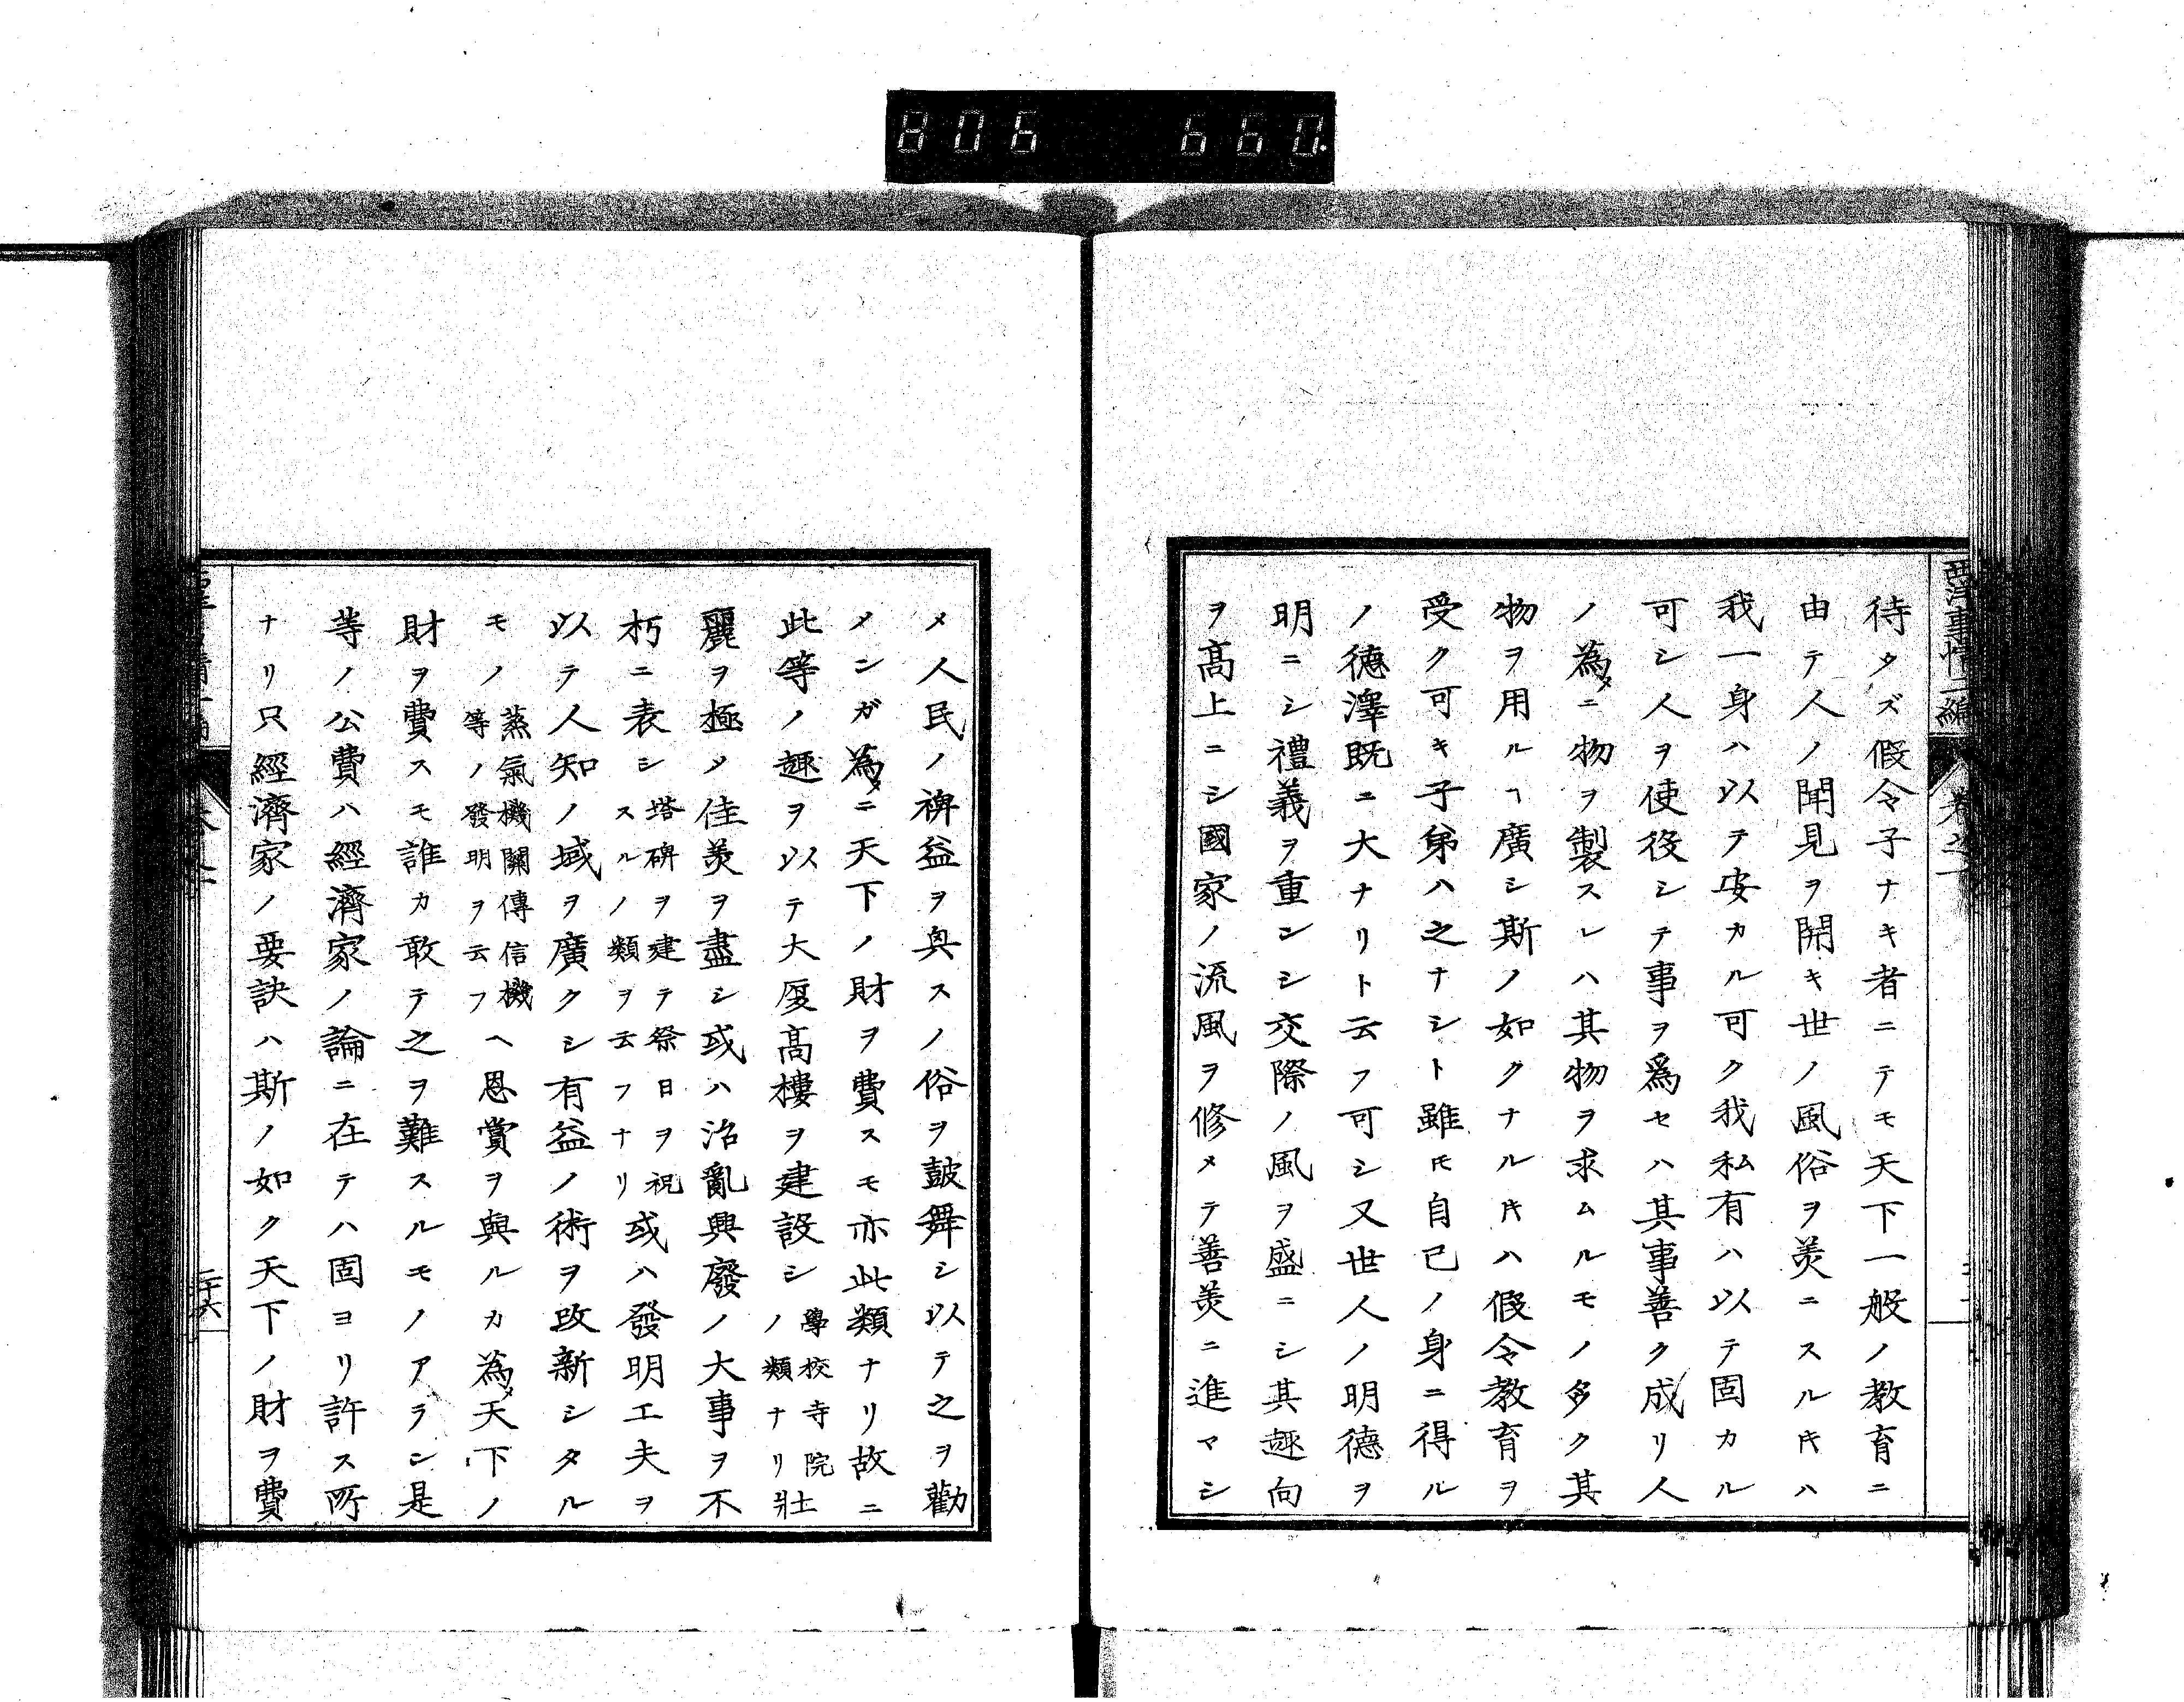 806 660.
西洋事情二編 卷之一
待タズ假令子ナキ者ニテモ天下一般ノ教育ニ
由テ人ノ聞見ヲ開キ世ノ風俗ヲ美ニスルキハ
我一身ハ以テ安カル可ク我私有ハ以テ固カル
可シ人ヲ使役シテ事ヲ爲セハ其事善ク成リ人
ノ為メニ物ヲ製スレハ其物ヲ求ムルモノ多ク其
物ヲ用ルヿ廣シ斯ノ如クナルキハ假令教育ヲ
受ク可キ子弟ハ之ナシト雖𪜈自己ノ身ニ得ル
ノ德澤既ニ大ナリト云フ可シ又世人ノ明德ヲ
明ニシ禮義ヲ重ンシ交際ノ風ヲ盛ニシ其趣向
ヲ高上ニシ國家ノ流風ヲ修メテ善美ニ進マシ
メ人民ノ裨益ヲ與スノ俗ヲ鼓舞シ以テ之ヲ勸
メンガ為メニ天下ノ財ヲ費スモ亦此類ナリ故ニ
此等ノ趣ヲ以テ大厦高樓ヲ建設シ學校寺院ノ類ナリ壯
麗ヲ極メ佳美ヲ盡シ或ハ治亂興廢ノ大事ヲ不
朽ニ表シ塔碑ヲ建テ祭日ヲ祝スルノ類ヲ云フナリ或ハ發明工夫ヲ
以テ人知ノ域ヲ廣クシ有益ノ術ヲ改新シタル
モノ蒸氣機關傳信機等ノ發明ヲ云フヘ恩賞ヲ與ルカ為メ天下ノ
財ヲ費スモ誰カ敢テ之ヲ難スルモノアラン是
等ノ公費ハ經濟家ノ論ニ在テハ固ヨリ許ス所
ナリ只經濟家ノ要訣ハ斯ノ如ク天下ノ財ヲ費
二十六